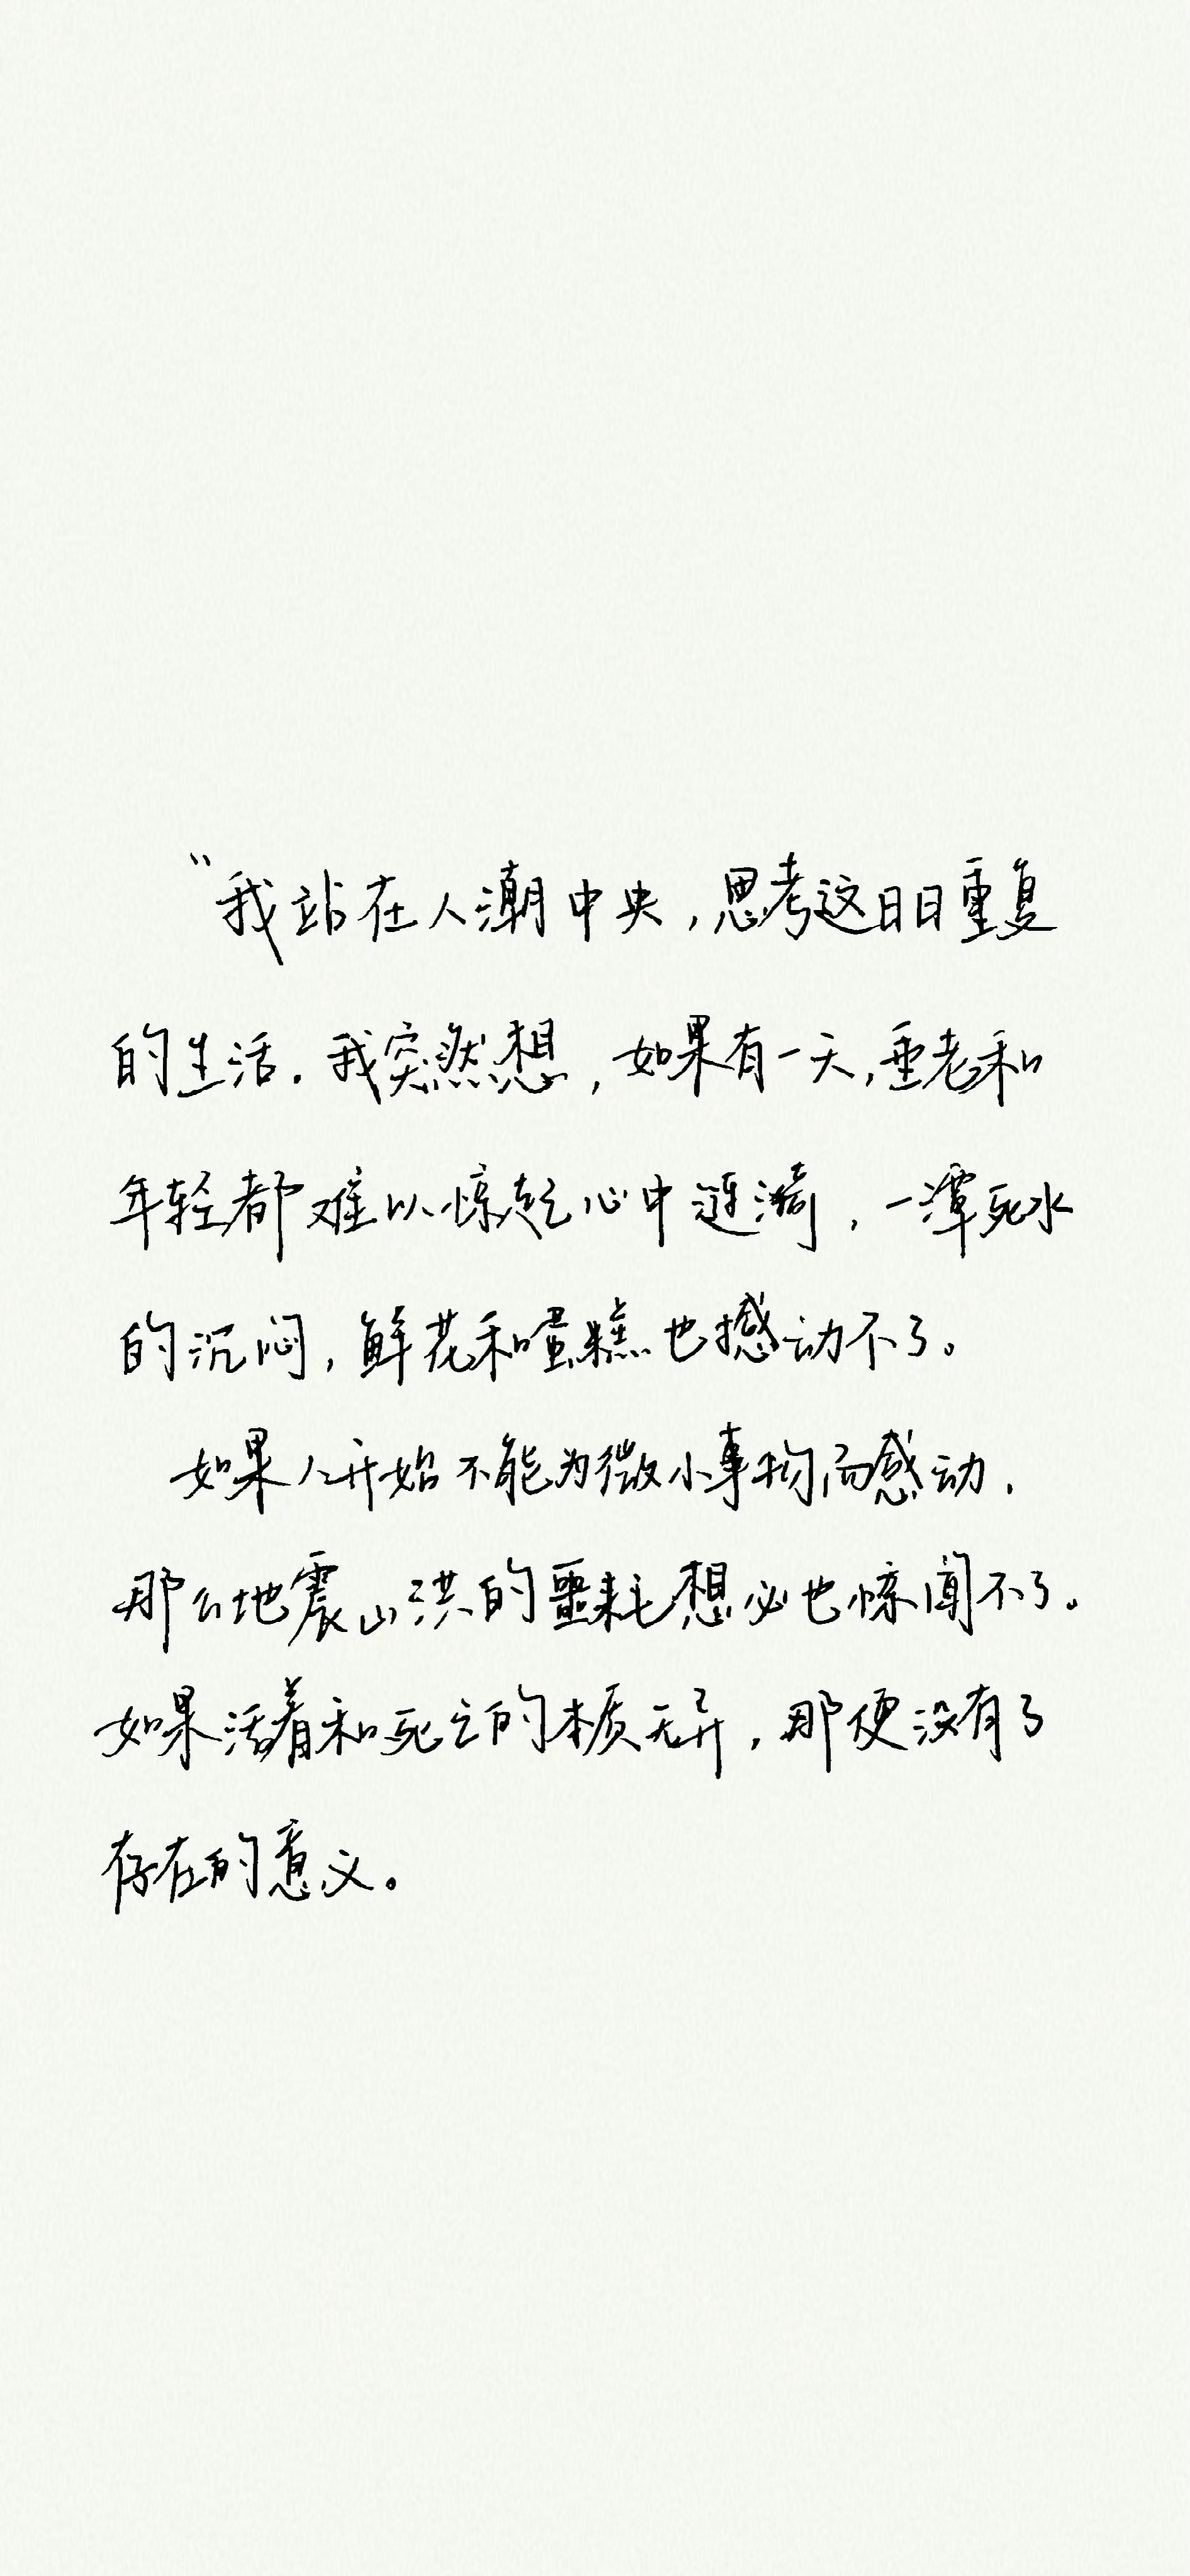 “我站在人潮中央,思考这日日重复
的生活.我突然想,如果有一天,垂老和
年轻都难以惊起心中涟漪,一潭死水
的沉闷,鲜花和蛋糕也撼动不了。
如果人开始不能为微小事物而感动,
那么地震山洪的噩耗想必也惊闻不了。
如果活着和死亡的本质无异,那便没有了
存在的意义。